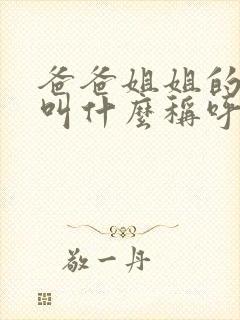 爸爸姐姐的
叫什麼稱呼
敬一丹